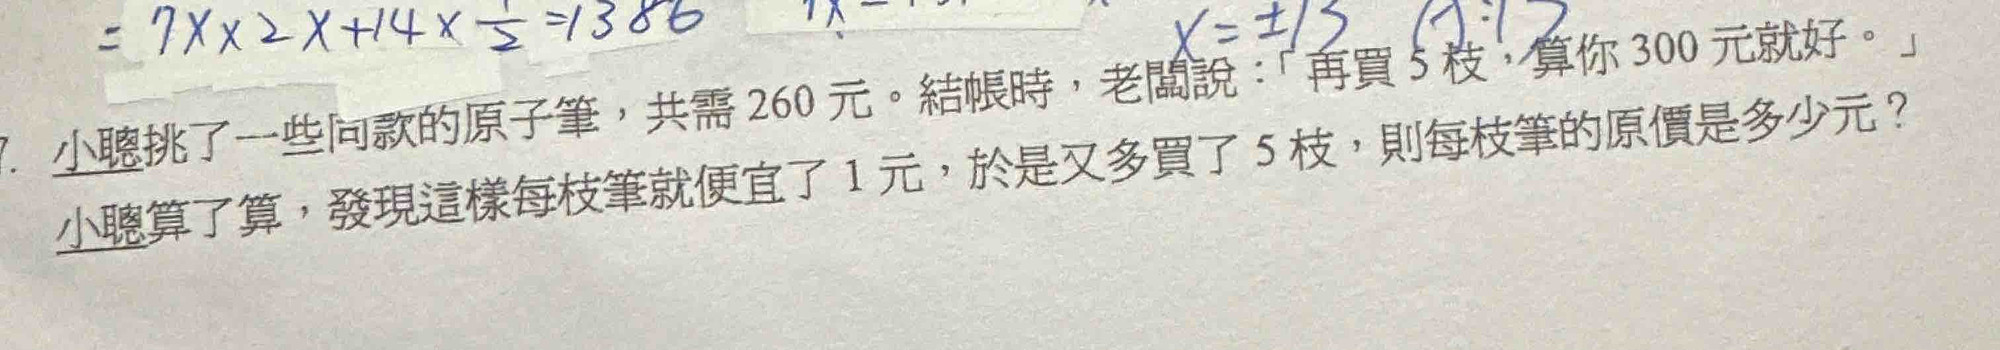 = 7X×2X+14×1/2=1386
X=±13
7. 小聰挑了一些同款的原子筆，共需 260 元。結帳時，老闆說：「再買 5 枝，算你 300 元就好。」
小聰算了算，發現這樣每枝筆就便宜了 1 元，於是又多買了 5 枝，則每枝筆的原價是多少元？